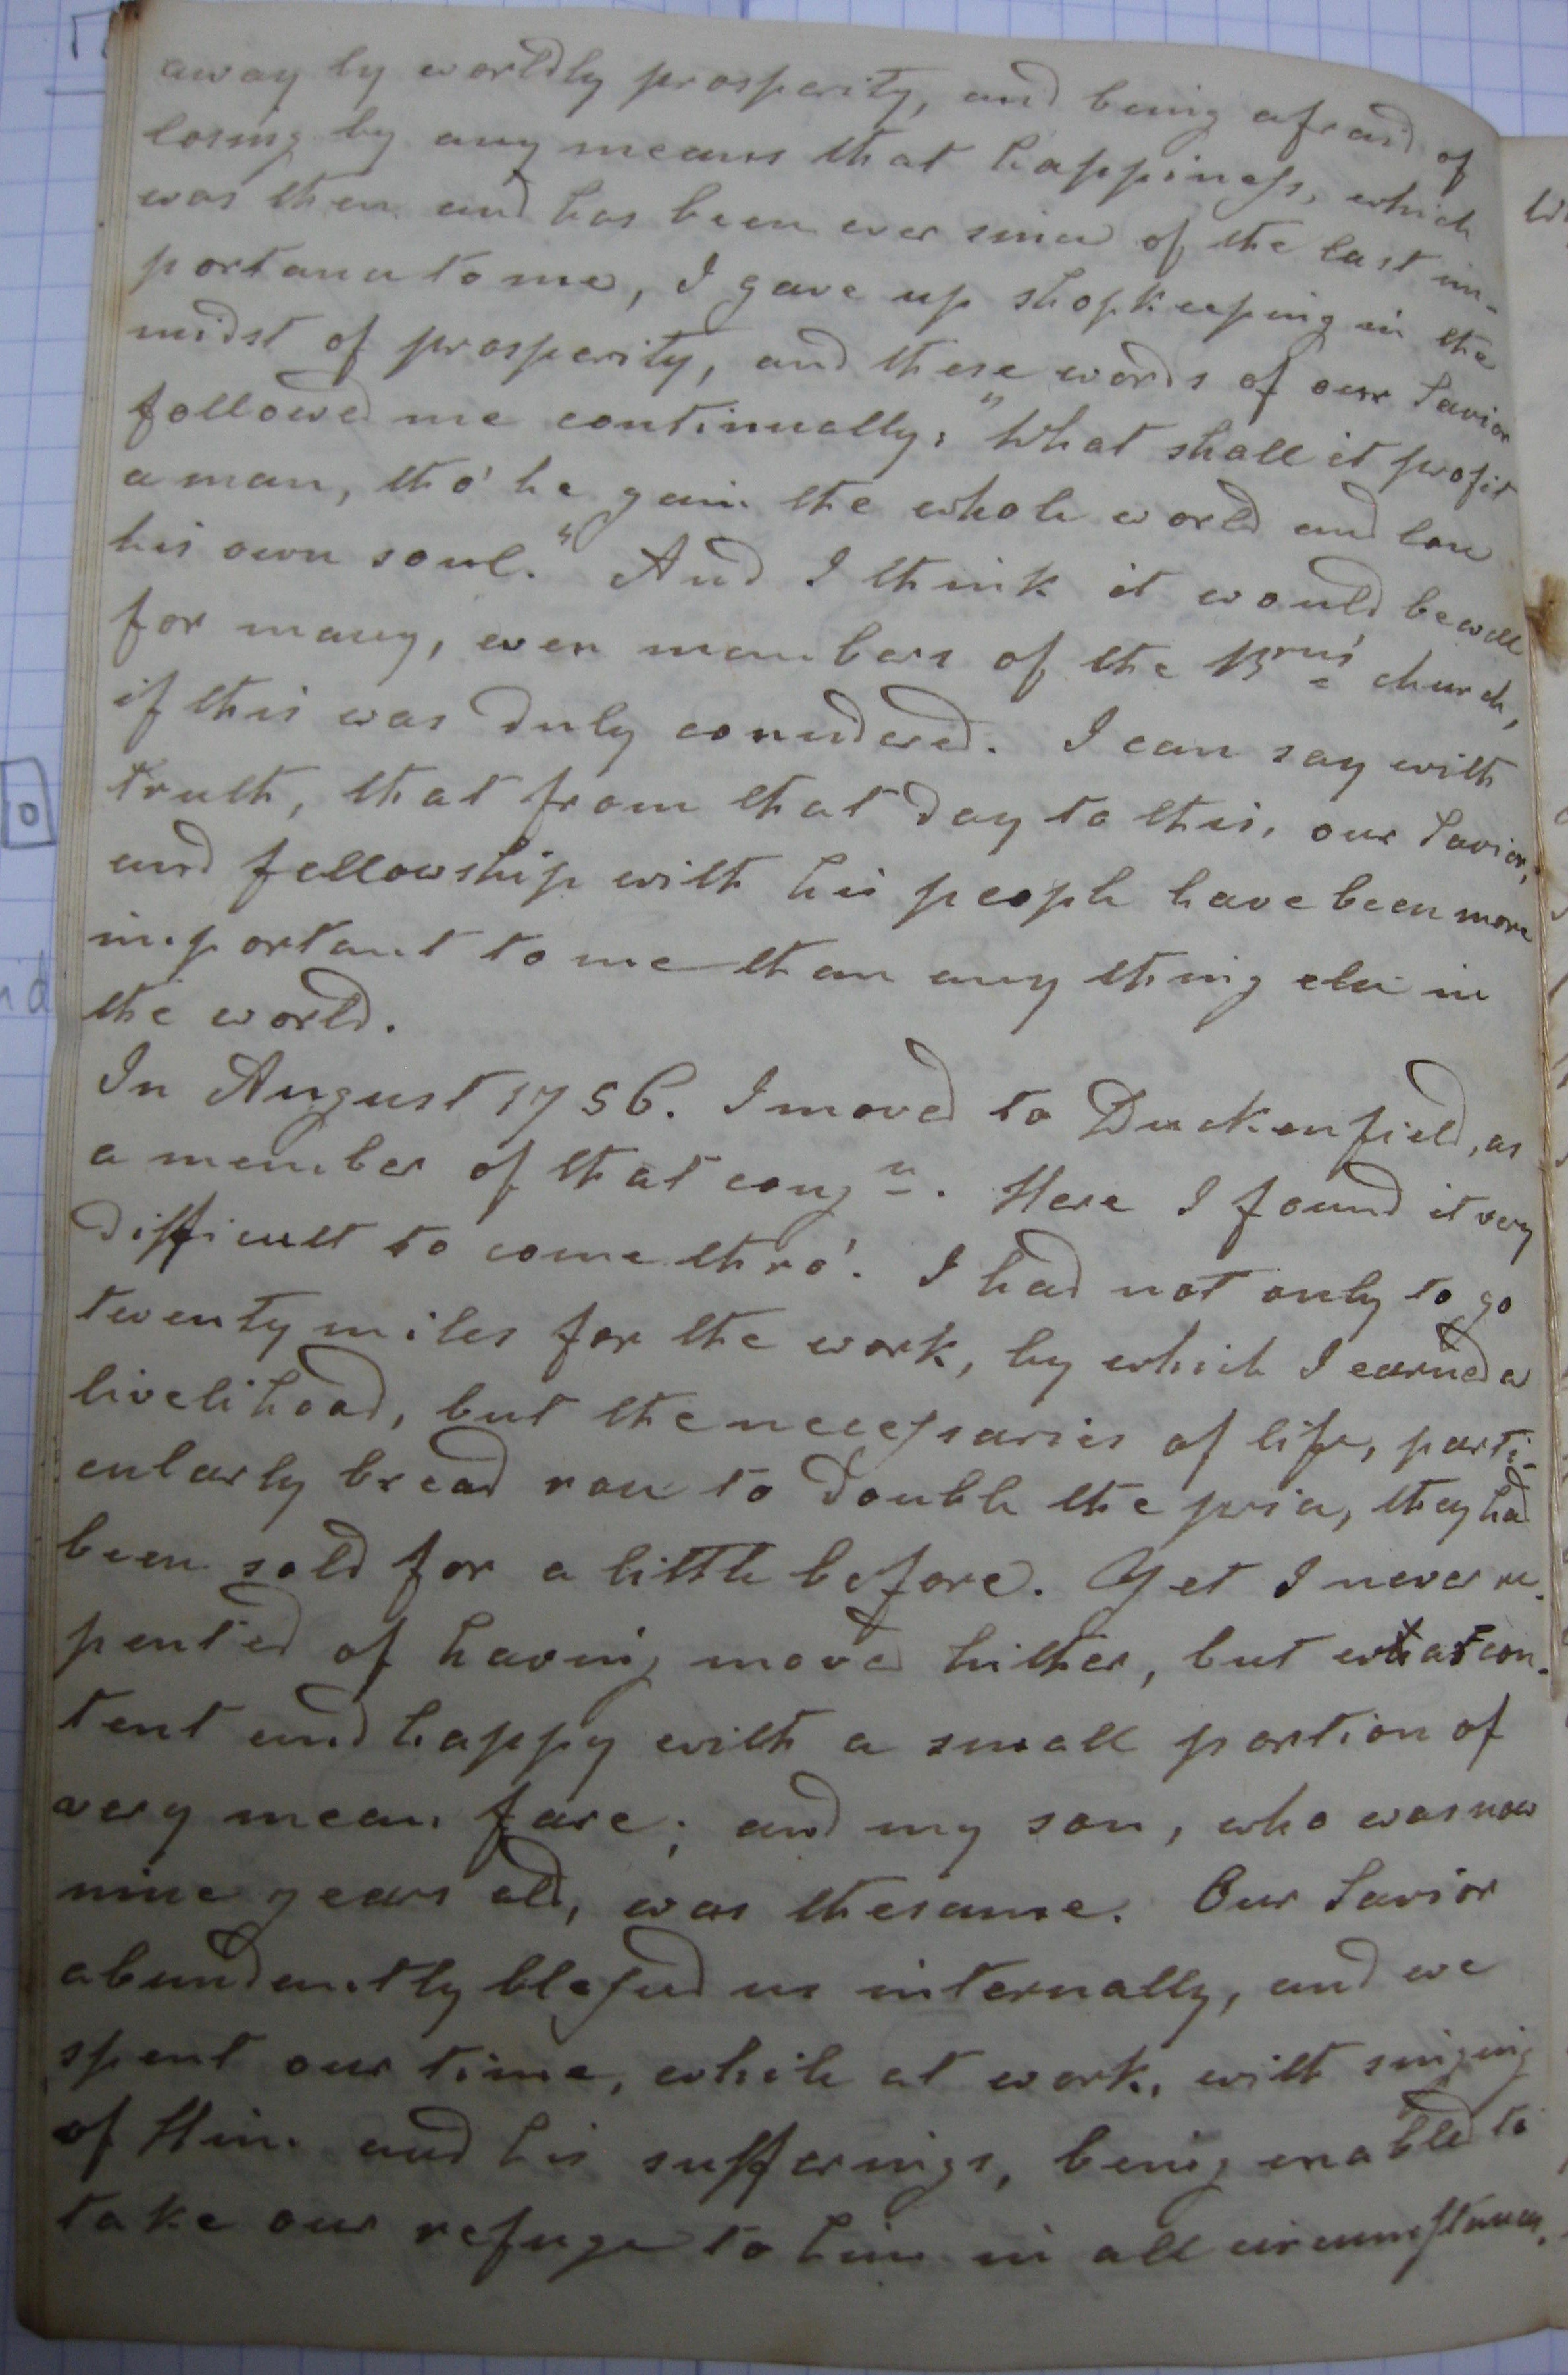 away by worldly prosperity, and being afraid of
losing by any means that happiness, which
was then and has been ever since of the last im-
portance to me, I gave up shopkeeping in the
midst of prosperity, and these words of our Savior
followed me continually: "What shall it profit
a man, tho' he gain the whole world and lose
his own soul." And I think it would be well
for many, even members of the Brns' church,
if this was duly considered. I can say with
truth, that from that day to this, our Savior,
and fellowship with his people have been more
important to me than any thing else in
the world.
In August 1756. I moved to Duckenfield, as
a member of that congn. Here I found it very
difficult to come thro'. I had not only to go
twenty miles for the work, by which I earned a
livelihood, but the necessaries of life, parti-
cularly bread rose to double the price, they had
been sold for a little before. Yet I never re-
pented of having moved hither, but was con-
tent and happy with a small portion of
very mean fare; and my son, who was now
nine years old, was the same. Our Savior
abundantly blessed us internally, and we
spent our time, while at work, with singing
of Him and his sufferings, being enabled to
take our refuge to him in all circumstances.